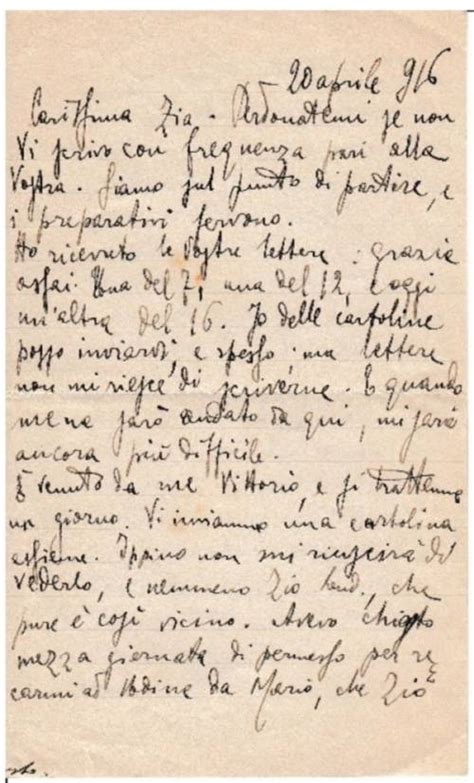 20 aprile 916
Carissima Zia. Perdonatemi se non
Vi scrivo con frequenza pari alla
Vostra. Siamo sul punto di partire, e
i preparativi fervono.
Ho ricevuto le Vostre lettere: grazie
assai. Una del 7, una del 12, e oggi
un'altra del 16. Io delle cartoline
posso inviarvi, e spesso: ma lettere
non mi riesce di scriverne. E quando
me ne sarò andato da qui, mi sarà
ancora più difficile.
È venuto da me Vittorio, e si trattenne
un giorno. Vi inviammo una cartolina
assieme. Ippino non mi riuscirà di
vederlo, e nemmeno Zio, che
pure è così vicino. Avevo chiesto
mezza giornata di permesso per re
carmi ad Udine da Mario, che Zio